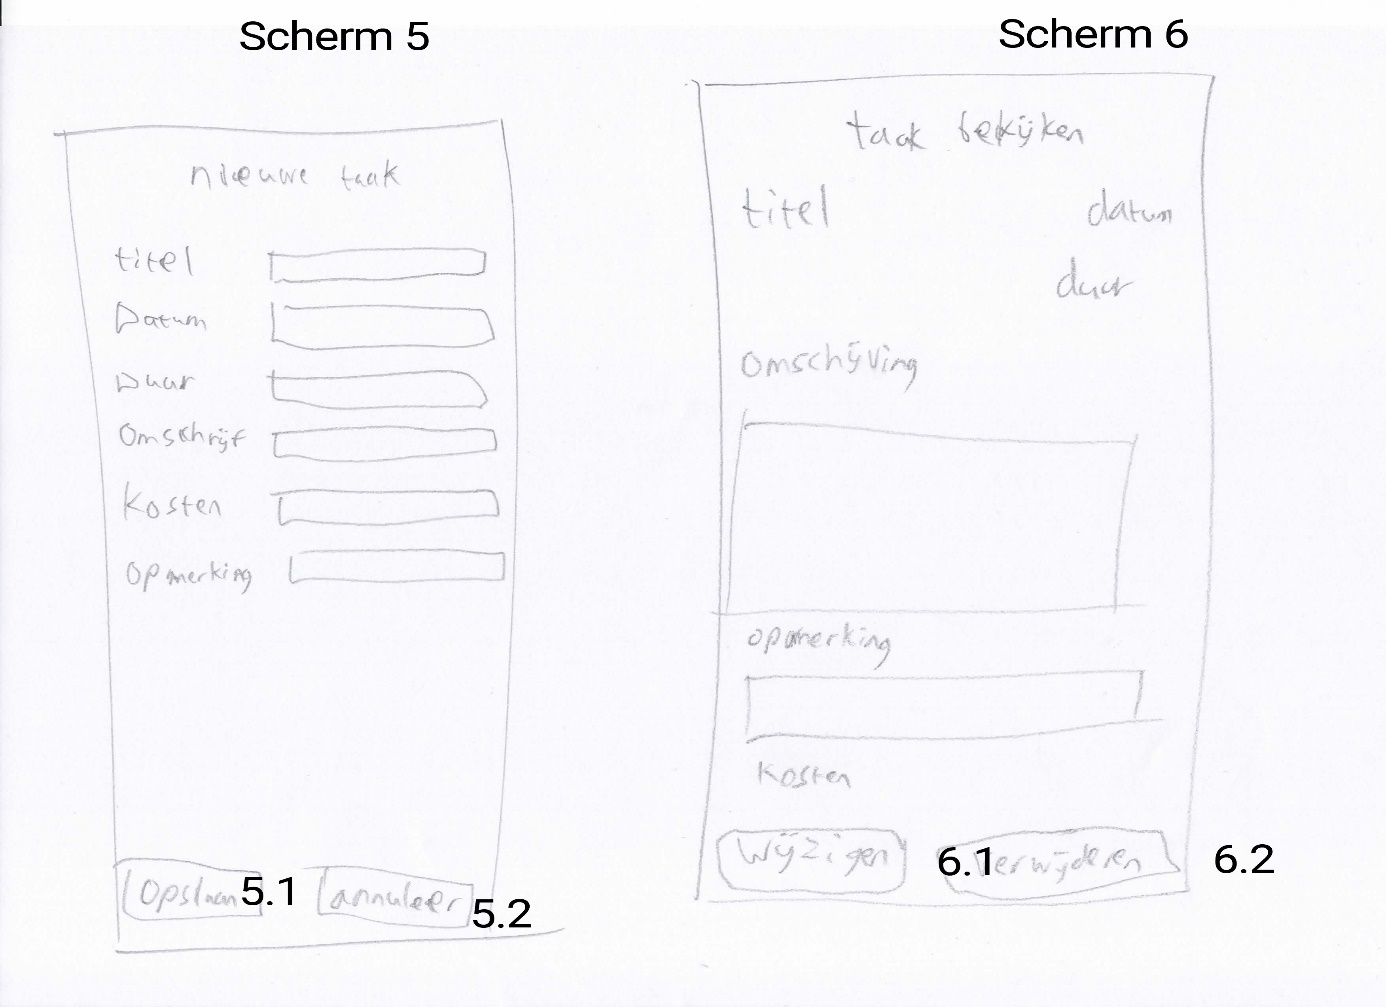 Scherm 5
nieuwe taak
titel
Datum
Duur
Omschrijf
Kosten
opmerking
Opslaan 5.1
annuleer 5.2
Scherm 6
taak bekijken
titel datum
duur
Omschijving
opmerking
Kosten
Wijzigen 6.1
verwijderen 6.2